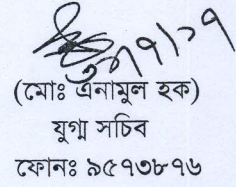 (মোঃ এনামুল হক)
যুগ্ম সচিব
ফোনঃ ৯৫৭৩৮৭৬